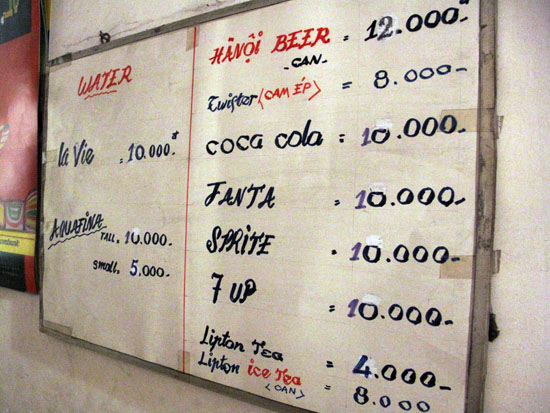 WATER
la Vie = 10.000đ
AQUAFINA TALL. 10.000-
small. 5.000-
HÀNỘI BEER = 12.000đ
-CAN-
Twister (CAM ÉP) = 8.000-
coca cola = 10.000-
FANTA = 10.000-
SPRITE = 10.000-
7 UP = 10.000-
Lipton Tea = 4.000-
Lipton ice Tea = 8.000
(CAN)